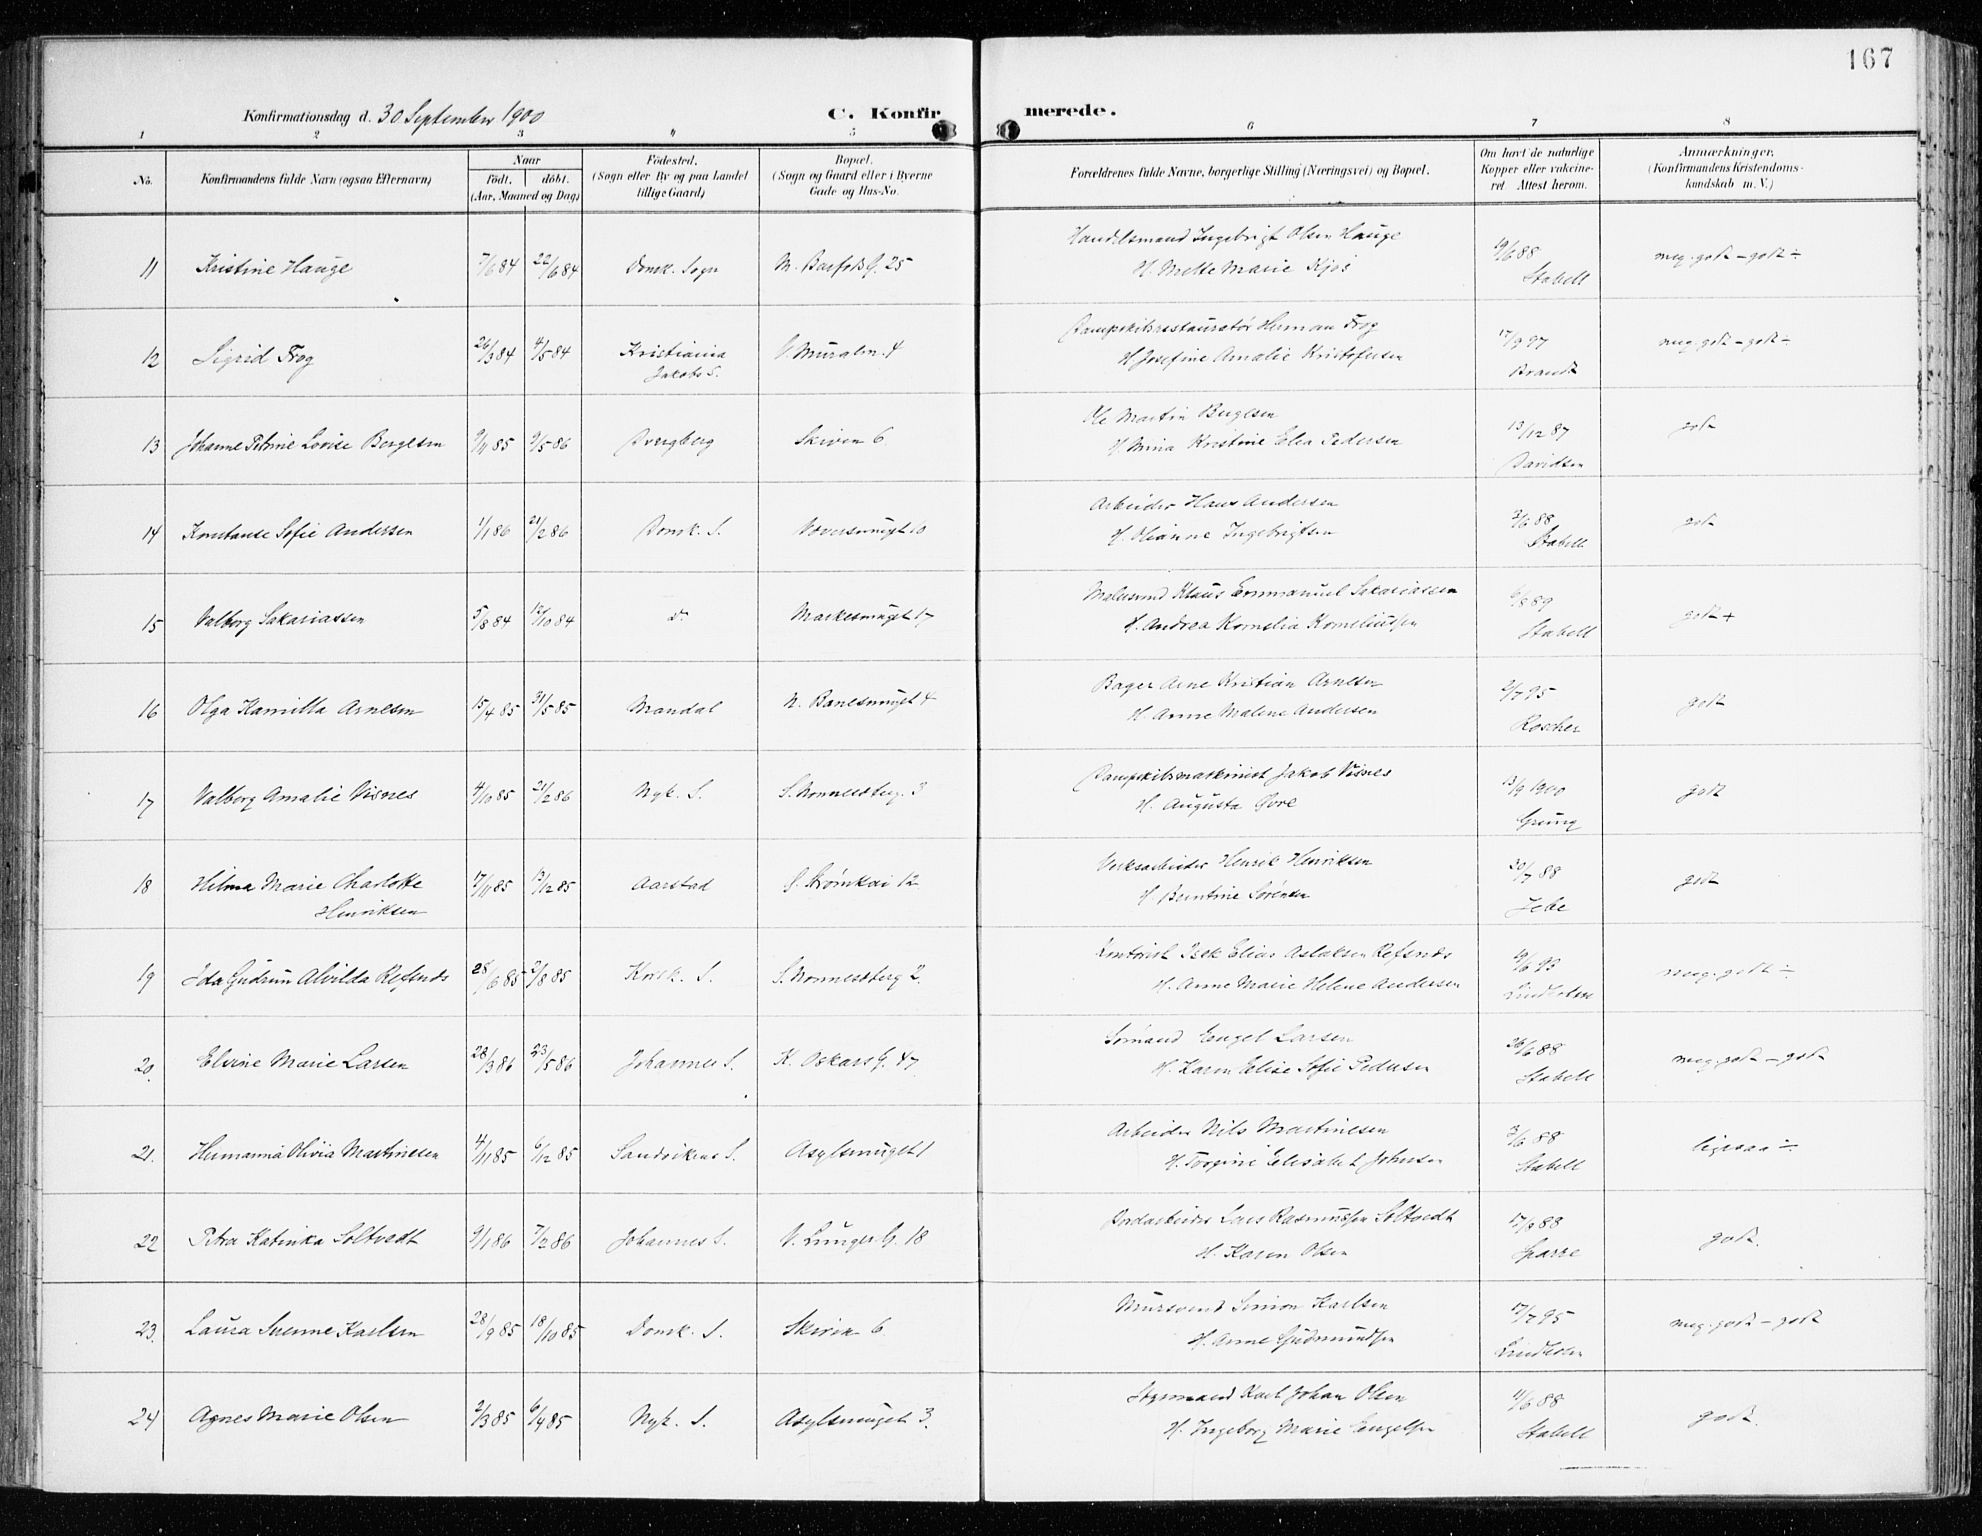 167
Konfirmationsdag d. 30 September 1900
C. Konfirmerede.
1 2 3 4 5 6 7 8
No.
Konfirmandens fulde Navn (ogsaa Efternavn)
Naar
Födt, döbt,
(Aar, Maaned og Dag)
Födested,
(Sogn eller By og paa Landet
tillige Gaard)
Bopæl.
(Sogn og Gaard eller i Byerne
Gade og Hus-No.
Forældrenes fulde Navne, borgerlige Stilling (Næringsvei) og Bopæl.
Om havt de naturlige
Kopper eller vakcine-
ret. Attest herom.
Anmærkninger,
(Konfirmandens Kristendoms-
kundskab m. V.)
11 Kristine Hauge 7/6 84 22/6 84 Domk. Sogn 25
Handelsmand Ingebrigt Olsen Hauge
H. Mette Marie Kjos
19/6 88
Stabell
meg. godt - godt ÷
12 Sigrid Frog 26/3 84 4/5 84 Kristiania
Jakobs S.
V. Muralm. 4
Dampskibsrestauratør Herman Frog
H. Josefine Amalie Kristofersen
17/9 97
Brandt
meg. godt - godt ÷
13 Johanne Petrine Lovise Bergesen 9/11 85 9/5 86 Dvergberg Skiven 6
Ole Martin Bergesen
H. Mina Kristine Elea Pedersen
13/12 87
Davidsen
godt
14 Konstanse Sofie Andersen 1/1 86 21/2 86 Domk. S. Væversmuget 10
Arbeider Hans Andersen
H. Olianne Ingebrigtsen
2/6 88
Stabell
godt
15 Valborg Sakariassen 5/8 84 12/10 84 do Markesmuget 17
Malersvend Klaus Emmanuel Sakariassen
H. Andrea Kornelia Korneliussen
6/8 89
Stabell
godt +
16 Olga Kamilla Arnesen 15/4 85 31/5 85 Mandal N. Banesmuget 4
Bager Arne Kristian Arnesen
H. Anne Malene Andersen
2/7 95
Roscher
godt
17 Valborg Amalie Visnes 4/10 85 21/2 86 Nyk. S. S. Nonnesterg. 3
Dampskibsmaskinist Jakob Visnes
H. Augusta Øvre
13/9 1900
Grung
godt
18 Hilma Marie Charlotte
Henriksen
17/11 85 13/12 85 Aarstad S. Strømkai 12
Verksarbeider Henrik Henriksen
H. Berntine Sørensen
20/7 88
Jebe
godt
19 Ida Gudrun Alvilda Refsnds 28/6 85 2/8 85 Korsk. S. S. Nonnesterg 2
Kontorist Isak Elias Aslaksen Refsnds
H. Anne Marie Helene Andersen
19/6 93
Lindesten
meg. godt ÷
20. Elvine Marie Larsen 28/3 86 23/5 86 Johannes S. K. Oskars G. 47
Sømand Engel Larsen
H. Karen Elise Sofie Pedersen
26/6 88
Stabell
meg. godt - godt
21. Hermanna Olivia Martinesen 4/11 85 6/12 85 Sandvikens S. Asylsmuget 1
Arbeider Nils Martinesen
H. Torgine Elisabet Johnsen
3/6 88
Stabell
ligesaa ÷
22 Petra Katinka Soltvedt 9/1 86 7/2 86 Johannes S. V. Lunger G. 18
Jordarbeider Lars Rasmussen Soltvedt
H. Karen Olsen
17/9 88
Sparre
godt.
23. Laura Susenne Karlsen 28/9 85 18/10 85 Domk. S. Skiven 6
Mursvend Simon Karlsen
H. Anne Gudmundsen
17/7 95
Lindesten
meg. godt - godt
24 Agnes Marie Olsen 2/3 85 6/4 85 Nyk. S. Asylsmuget 3.
Styrmand Karl Johan Olsen
H. Ingeborg Marie Engelsen
11/6 88
Stabell
godt.